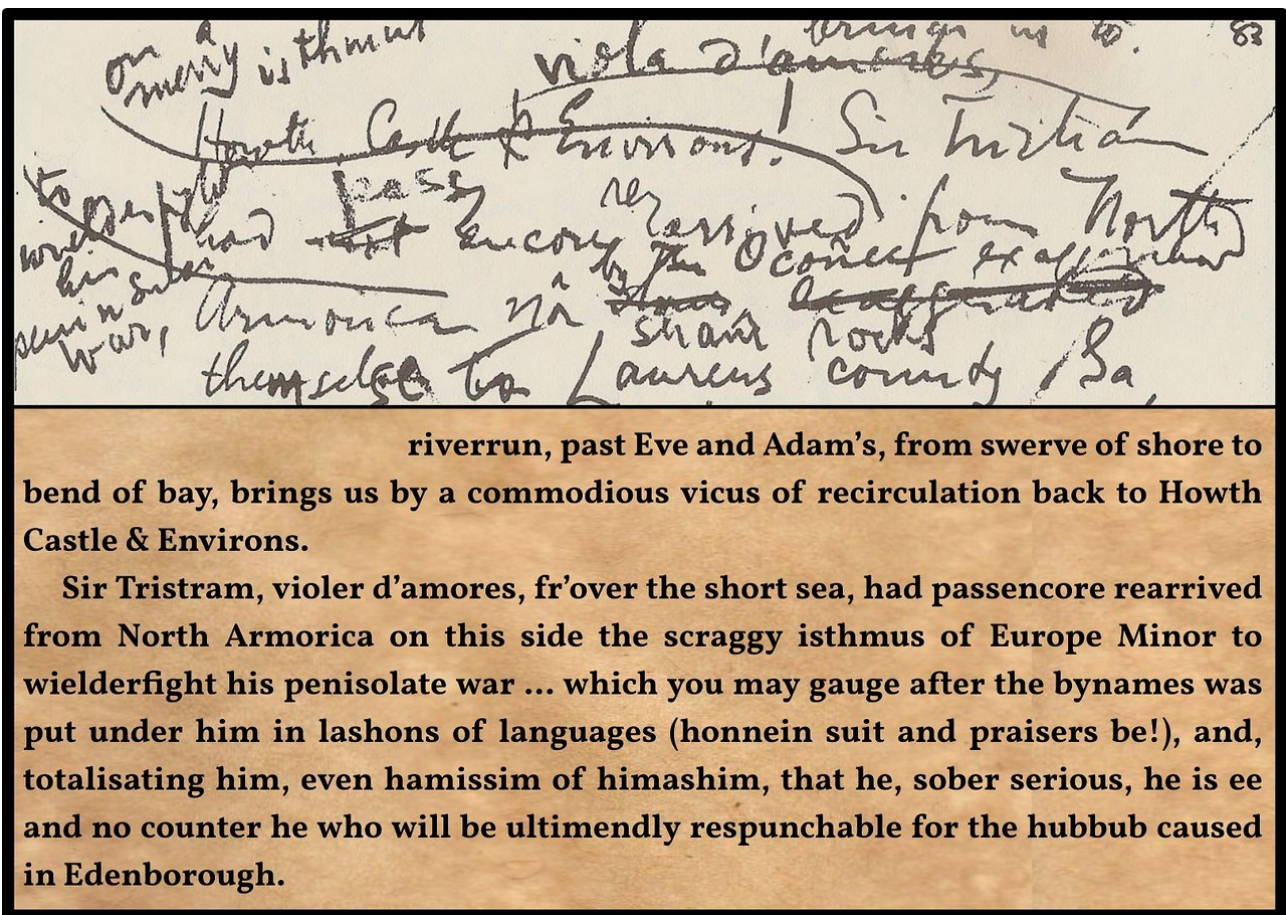 on a
merry isthmus
brings us to. 83
viola d'amores,
Howth Castle & Environs! Sir Tristran
to
wielderfight
his
peninsular
war,
pass
had not encore rearrived from North
by The Oconee exaggerated
Armorica nor
stream rocks
themselse to Laurens county, Ga,
riverrun, past Eve and Adam’s, from swerve of shore to
bend of bay, brings us by a commodious vicus of recirculation back to Howth
Castle & Environs.
Sir Tristram, violer d’amores, fr’over the short sea, had passencore rearrived
from North Armorica on this side the scraggy isthmus of Europe Minor to
wielderfight his penisolate war ... which you may gauge after the bynames was
put under him in lashons of languages (honnein suit and praisers be!), and,
totalisating him, even hamissim of himashim, that he, sober serious, he is ee
and no counter he who will be ultimendly respunchable for the hubbub caused
in Edenborough.